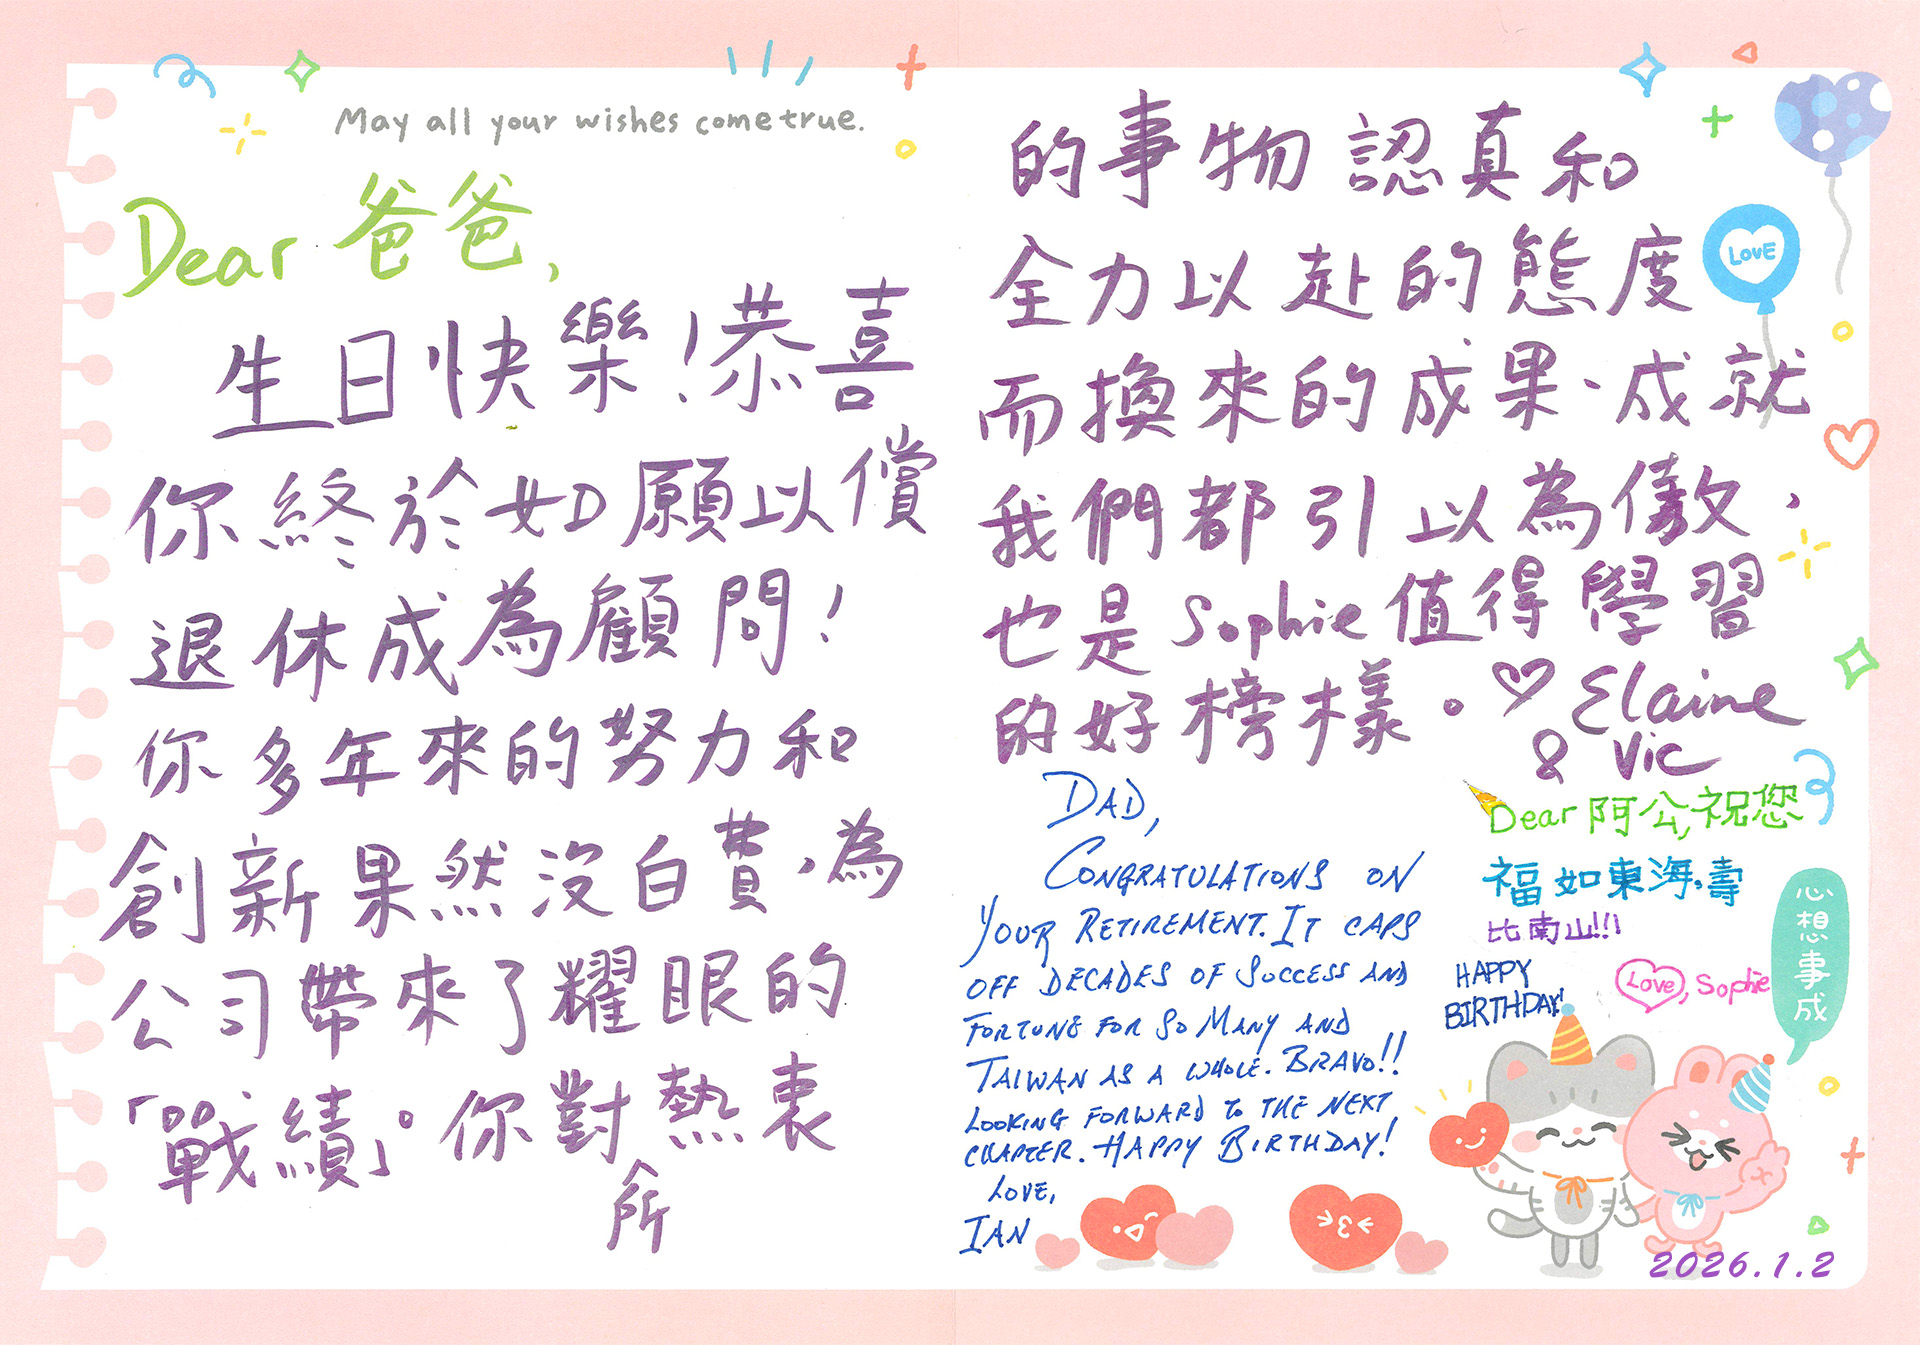 May all your wishes come true.
Dear 爸爸,
生日快樂!恭喜
你終於如願以償
退休成為顧問!
你多年來的努力和
創新果然沒白費,為
公司帶來了耀眼的
「戰績」。你對熱衷
所
的事物認真和
全力以赴的態度
而換來的成果、成就
我們都引以為傲,
也是Sophie值得學習
的好榜樣。♡ Elaine
& Vic
LOVE
DAD,
CONGRATULATIONS ON
YOUR RETIREMENT. IT CAPS
OFF DECADES OF SUCCESS AND
FORTUNE FOR SO MANY AND
TAIWAN AS A WHOLE. BRAVO!!
LOOKING FORWARD TO THE NEXT
CHAPTER. HAPPY BIRTHDAY!
LOVE,
IAN
Dear 阿公,祝您
福如東海,壽
比南山!!!
HAPPY
BIRTHDAY!
Love, Sophie
心想事成
2026.1.2